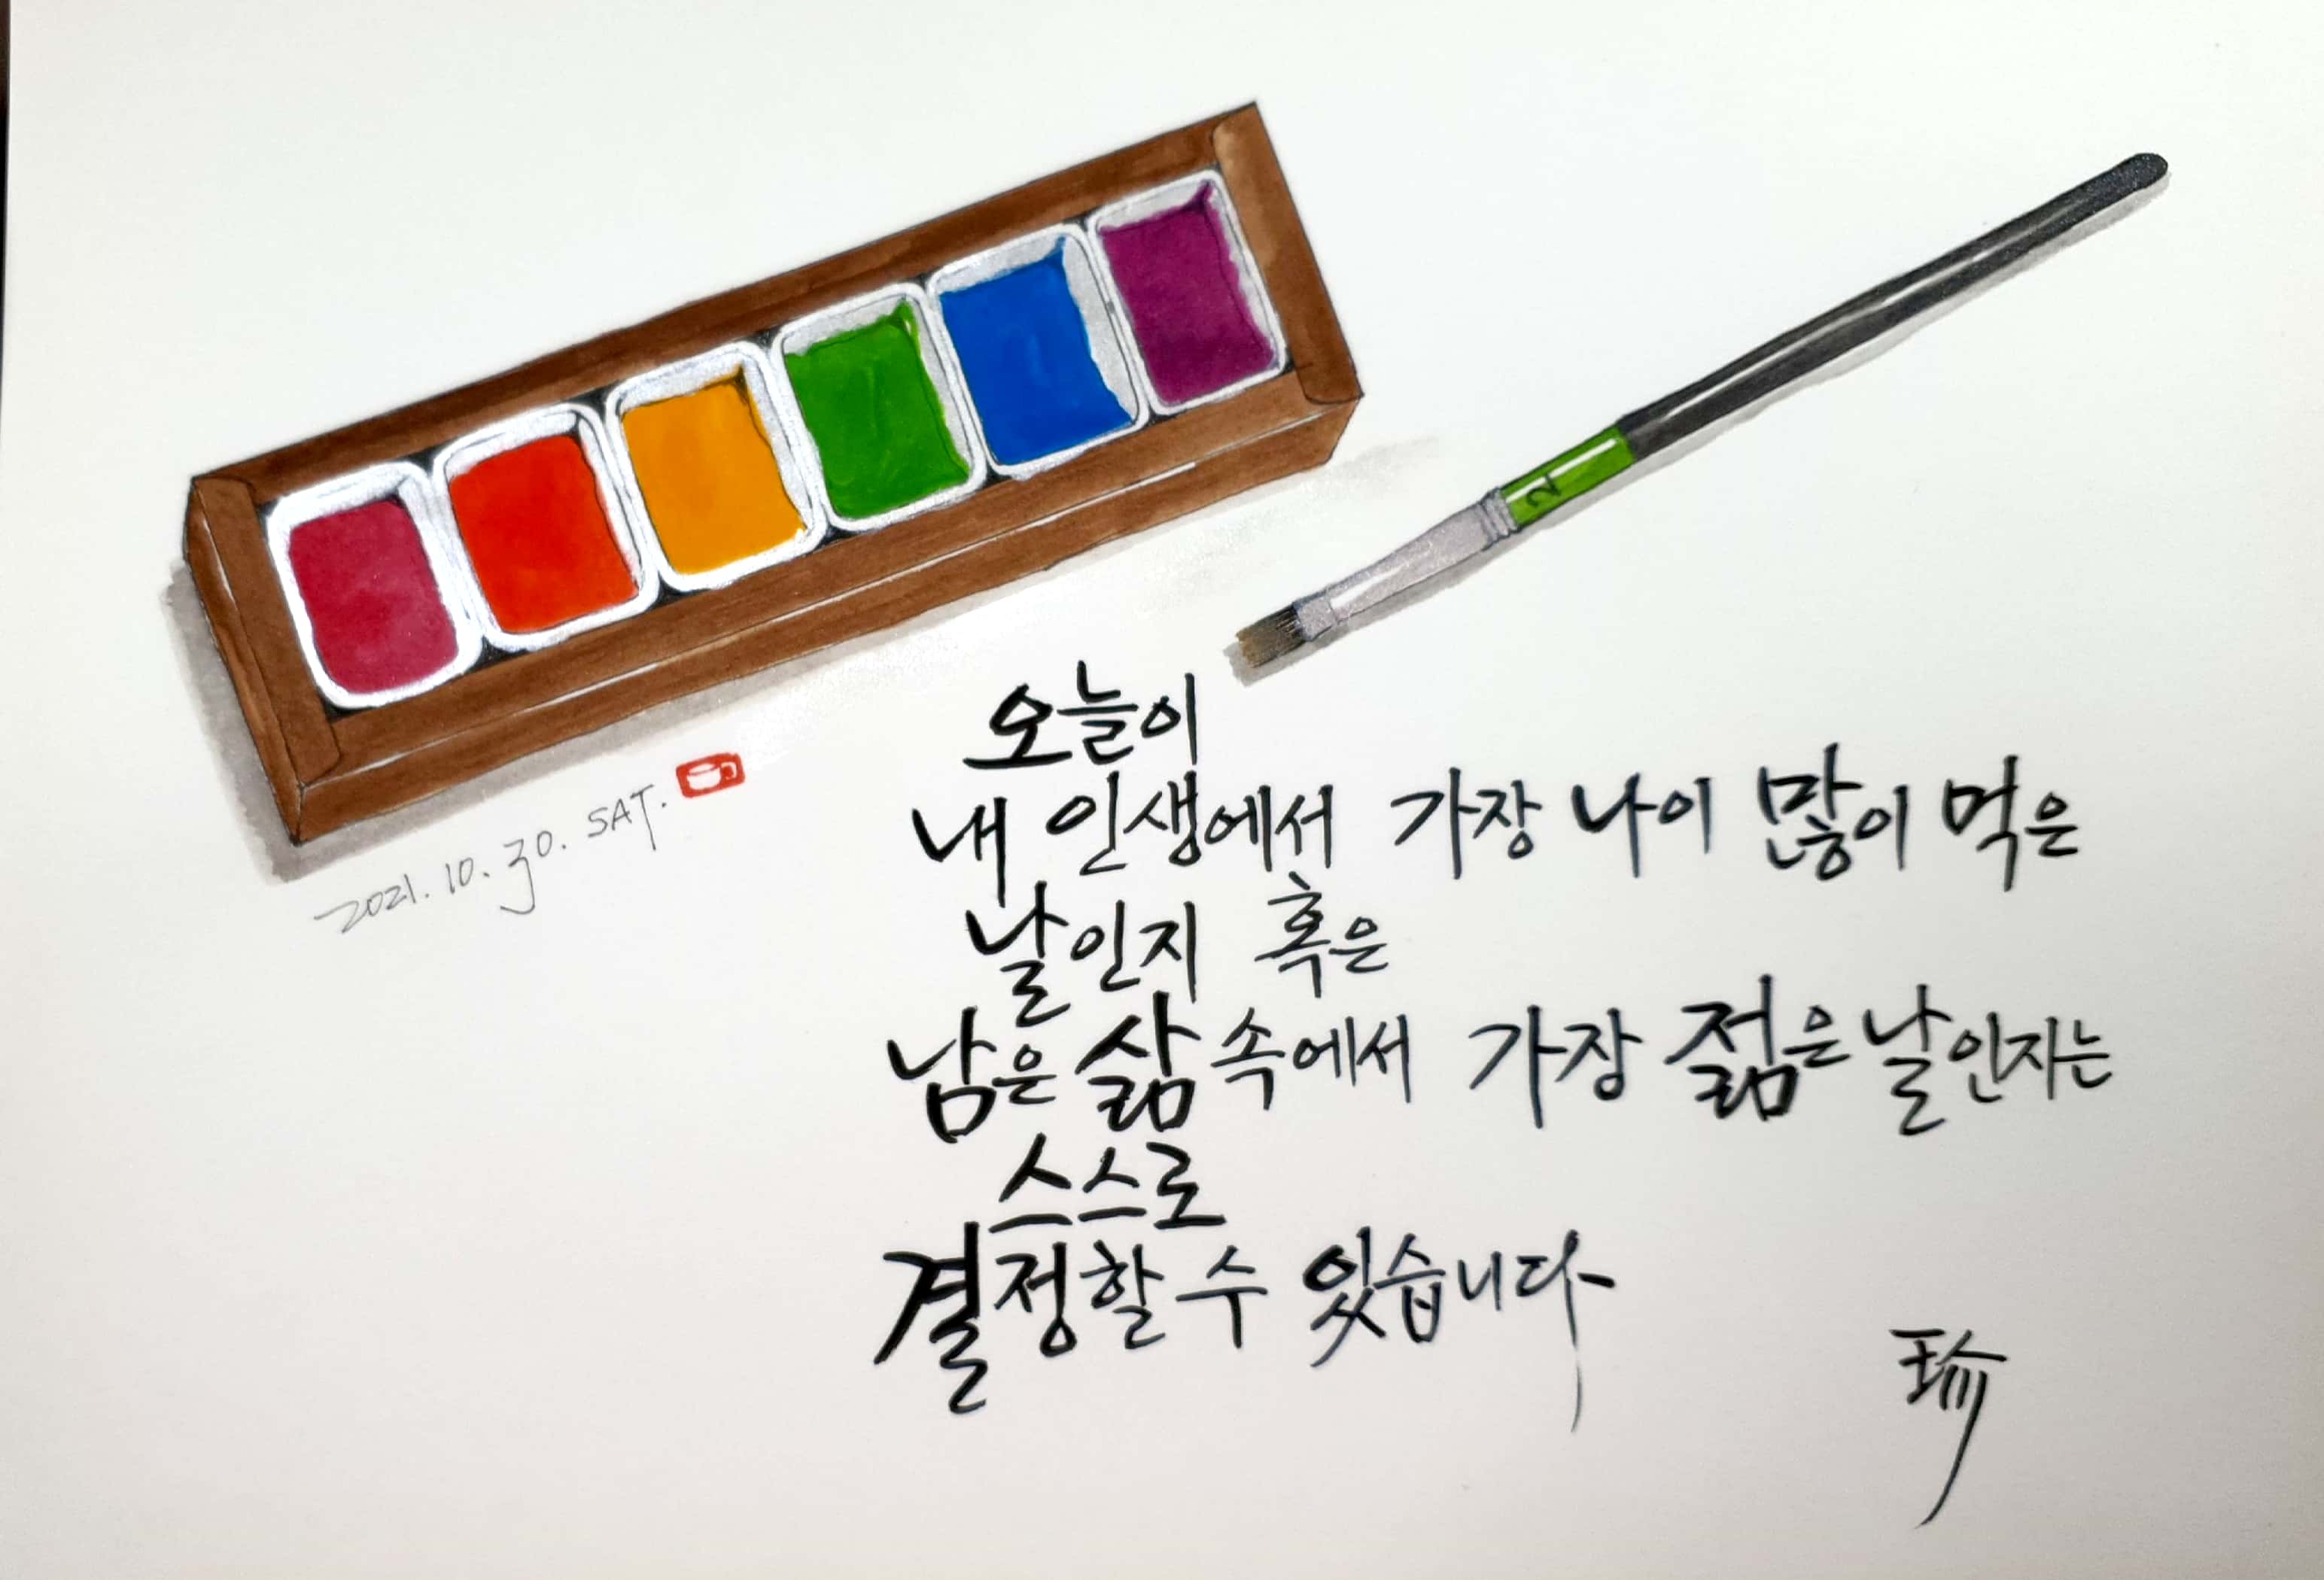 2
2021. 10. 30. SAT.
오늘이
내 인생에서 가장 나이 많이 먹은
날인지 혹은
남은 삶 속에서 가장 젊은 날인지는
스스로
결정할 수 있습니다